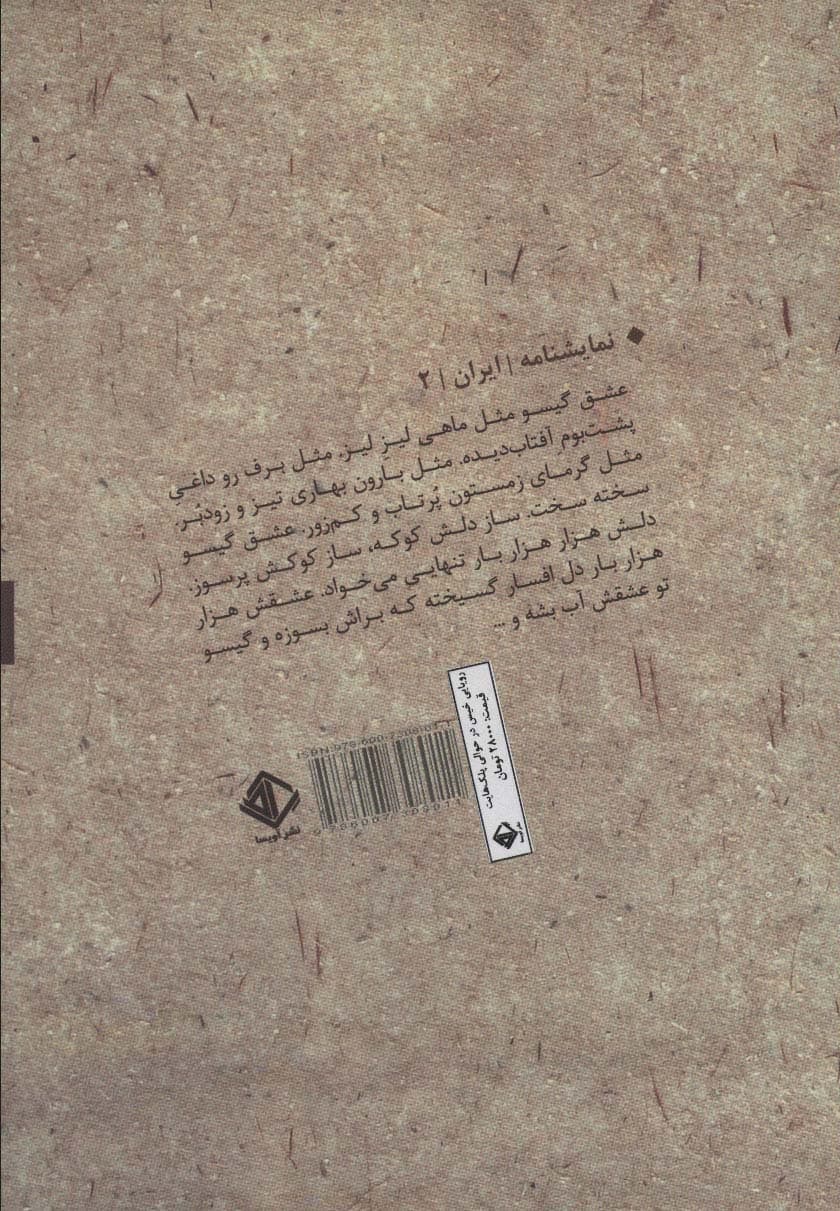 ◆ نمایشنامه | ایران | ۲
عشق گیسو مثل ماهی لیزِ لیز. مثل برف رو داغیِ
پشت‌بوم آفتاب‌دیده. مثل بارون بهاری تیز و زودبُر.
مثل گرمای زمستون پُرتاب و کم‌زور. عشق گیسو
سخته سخت. ساز دلش کوکه، ساز کوکش پرسوز.
دلش هزار هزار بار تنهایی می‌خواد. عشقش هزار
هزار بار دل افسار گسیخته که براش بسوزه و گیسو
تو عشقش آب بشه و ...
رویایی خیس در حوالی پلک‌هایت
قیمت: ۲۸۰۰۰ تومان
نشر نویسا